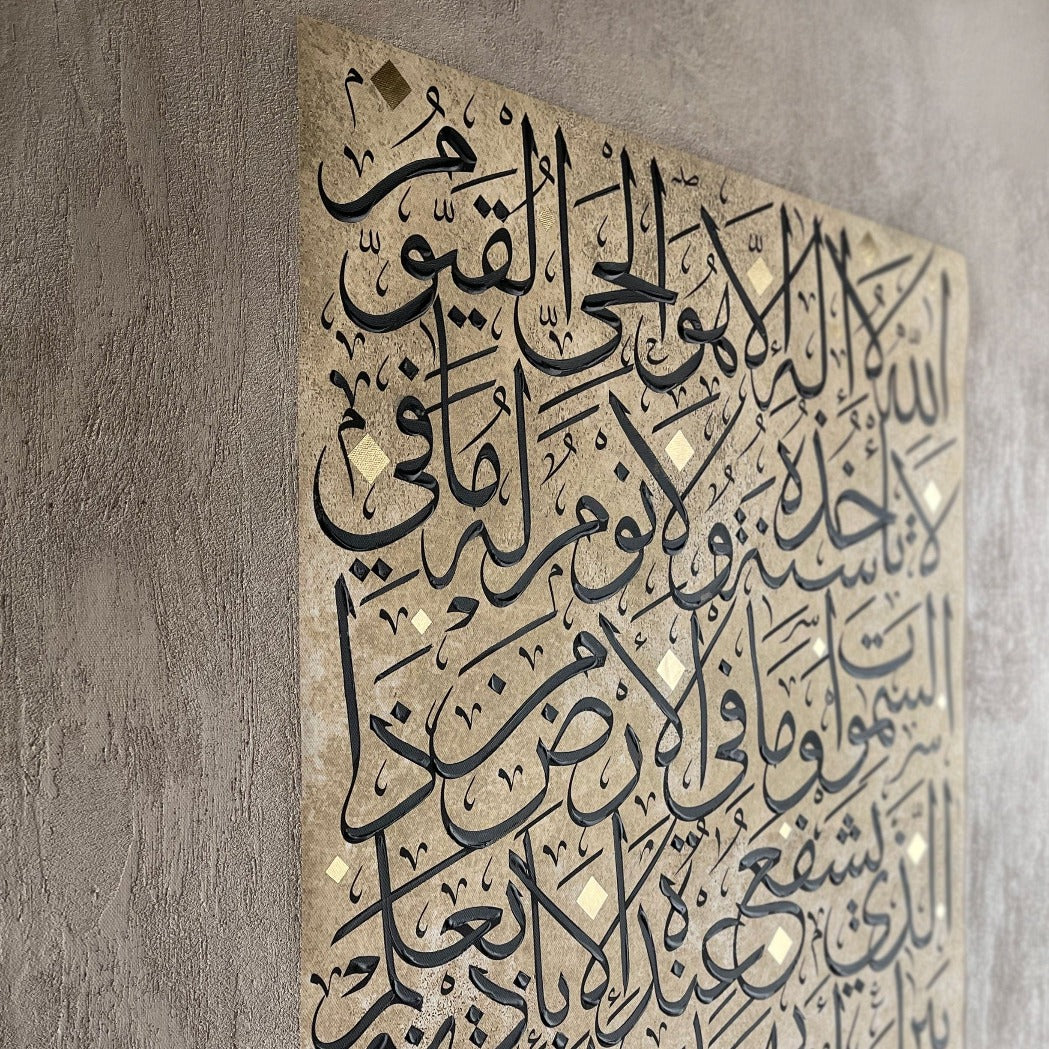 اَللّٰهُ لَا إِلٰهَ إِلَّا هُوَ الْحَيُّ الْقَيُّومُ
لَا تَأْخُذُهُ سِنَةٌ وَلَا نَوْمٌ لَهُ مَا فِي
السَّمٰوَاتِ وَمَا فِي الْأَرْضِ مَنْ ذَا
الَّذِي يَشْفَعُ عِنْدَهُ إِلَّا بِإِذْنِهِ يَعْلَمُ